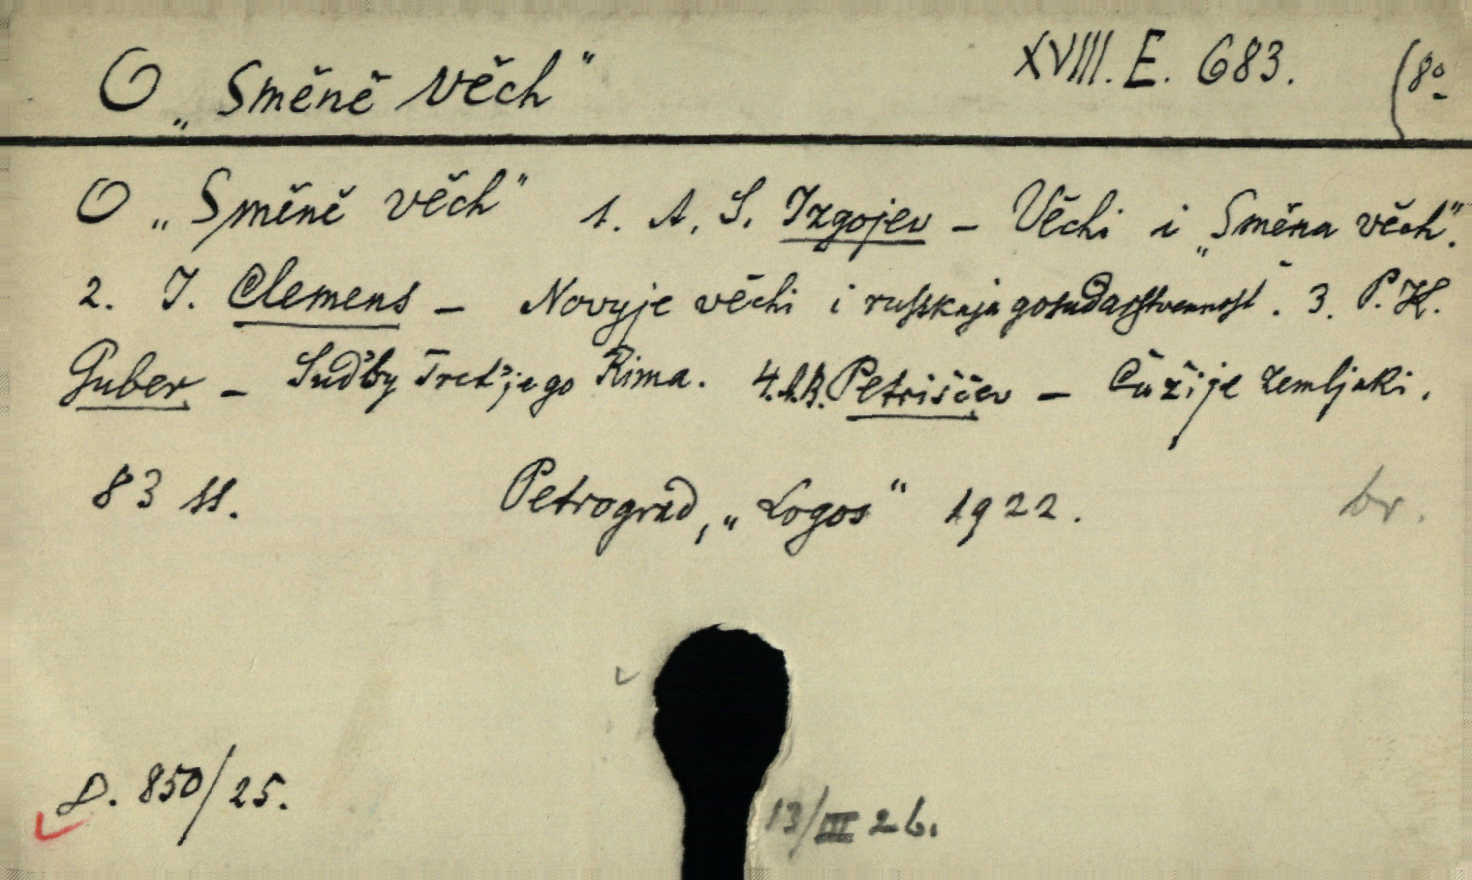 O „Směně věch" XVIII. E. 683. (8º
O „Směně věch" 1. A. S. Izgojev – Věchi i „Směna věch".
2. I. Clemens – Novyje věchi i russkaja gosudarstvennost'. 3. P. K.
Guber – Sud'by Tret'jego Rima. 4. A. B. Petriščev – Čužije zemljaki.
83 ss. Petrograd, „Logos" 1922. br.
D. 850/25.
13/III 26.